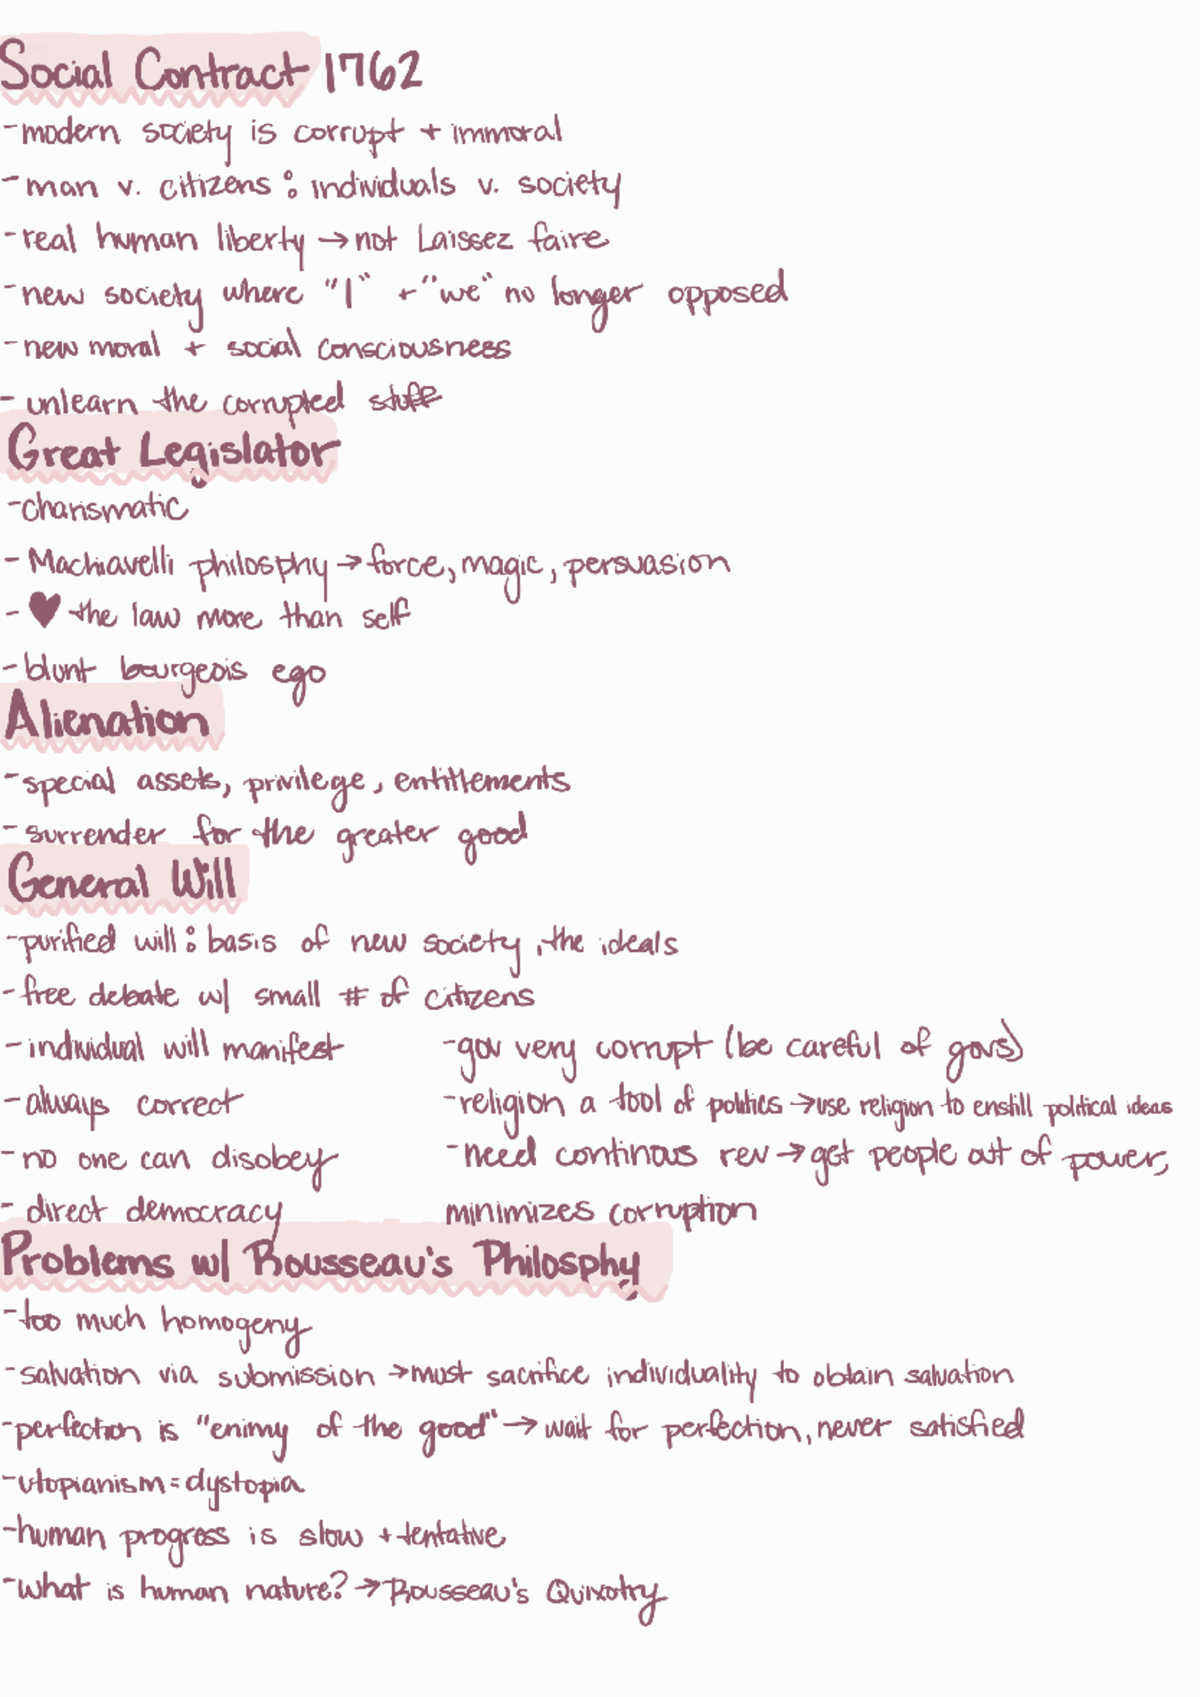 Social Contract 1762
-modern society is corrupt + immoral
-man v. citizens: individuals v. society
-real human liberty → not Laissez faire
-new society where "I" + "we" no longer opposed
-new moral + social consciousness
- unlearn the corrupted stuff
Great Legislator
-charismatic
- Machiavelli philosphy → force, magic, persuasion
- ♥ the law more than self
-blunt bourgeois ego
Alienation
-special assets, privilege, entitlements
-surrender for the greater good
General Will
-purified will: basis of new society, the ideals
-free debate w/ small # of citizens
-individual will manifest
-always correct
-no one can disobey
- direct democracy
-gov very corrupt (be careful of govs)
-religion a tool of politics → use religion to enstill political ideas
-need continous rev → get people out of power,
minimizes corruption
Problems w/ Rousseau's Philosphy
-too much homogeny
-salvation via submission → must sacrifice individuality to obtain salvation
-perfection is "enimy of the good" → wait for perfection, never satisfied
-utopianism = dystopia
-human progress is slow + tentative
-what is human nature? → Rousseau's Quixotry